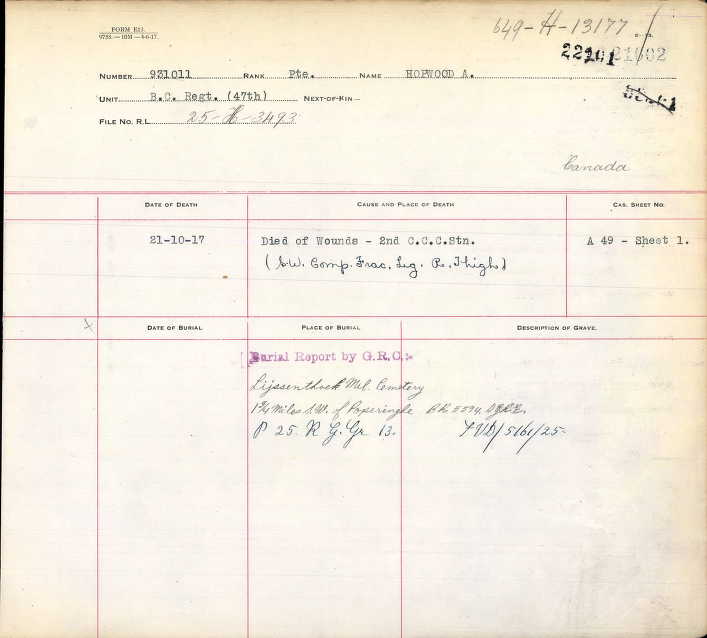 FORM E11.
9753.—10M—4-6-17.
649-H-13177
22101 21602
NUMBER 931011 RANK Pte. NAME HOPWOOD A.
UNIT B.C. Regt. (47th) NEXT-OF-KIN—
FILE NO. R.L. 25-H-3493
Canada
DATE OF DEATH CAUSE AND PLACE OF DEATH CAS. SHEET NO.
21-10-17 Died of Wounds - 2nd C.C.C.Stn. A 49 - Sheet 1.
(S.W. Comp. Frac. Leg. R. Thigh)
x DATE OF BURIAL PLACE OF BURIAL DESCRIPTION OF GRAVE.
Burial Report by G.R.C:-
Lijssenthoek Mil. Cemetery
1¾ Miles S.W. of Poperinghe
P 25. R G. Gr 13. /5161/25-